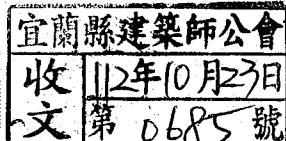 宜蘭縣建築師公會
收文
112年10月23日
第 0685 號